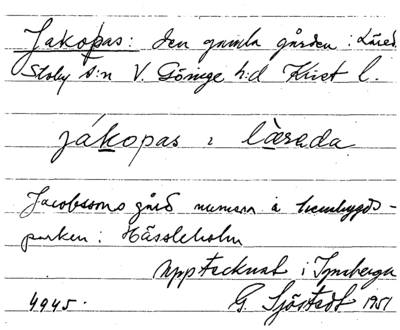 Jakopas: den gamla gården i Läred
Stoby s:n V. Göinge h:d Krist l.
jákopas i làrada
Jacobssons gård numera å hembygds-
parken i Hässleholm
Upptecknat i Tymberga
4945. G. Sjöstedt 1951